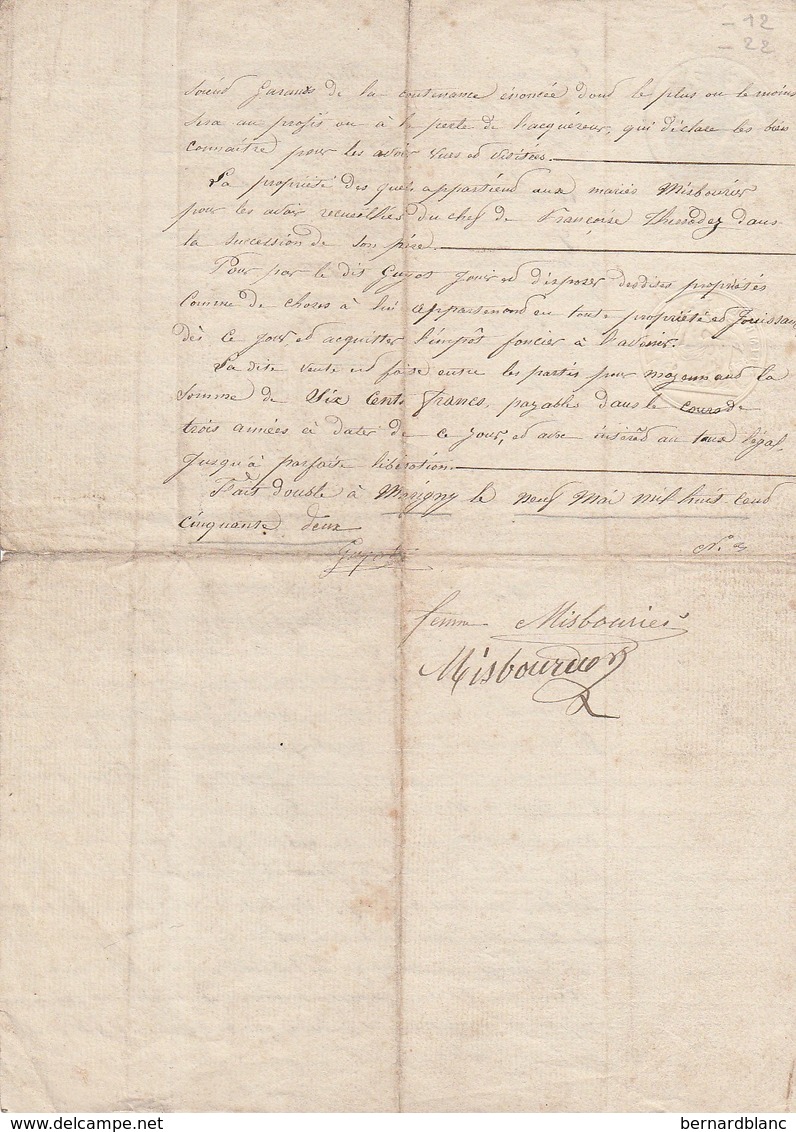 - 12
- 22
soient garants de la contenance énoncée dont le plus ou le moins
sera au profit ou à la perte de l'acquéreur, qui déclare les bien
connaître pour les avoir vues et visitées.
La propriété des quels appartient aux mariés Misbourier
pour les avoir recueillies du chef de Françoise dans
la succession de son père.
Pour par le dit Guyot jouir et disposer desdites propriétés
comme de choses à lui appartenant en toute propriété et jouissance
dès ce jour, et acquitter l'impôt foncier à l'avenir.
La dite vente est faite entre les parties pour moyennant la
somme de Six cents francs, payables dans le cours de
trois années à dater de ce jour, et avec intérêt au taux légal
jusqu'à parfaite libération.
Fait double à Marigny le neuf Mai mil huit cent
cinquante deux
Guyot
femme Misbourier
Misbourier
bernardblanc